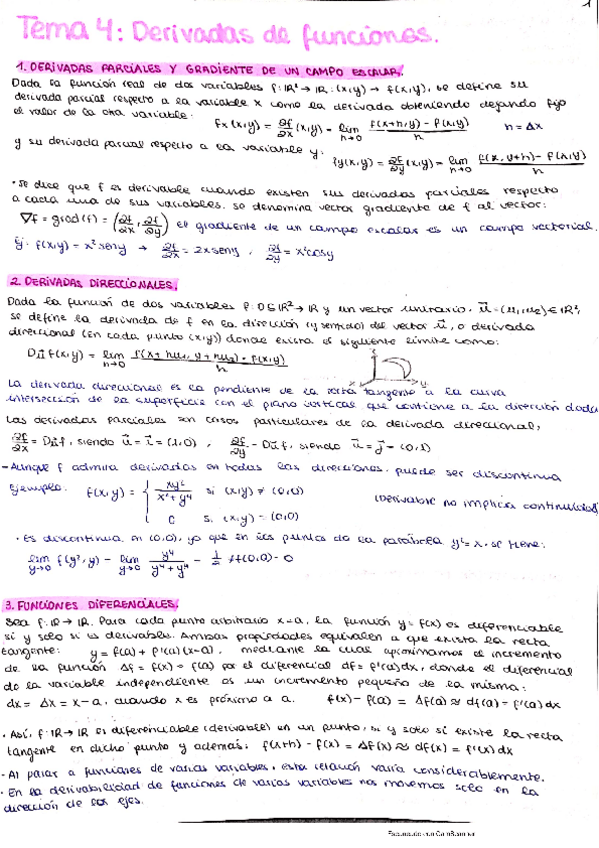 1
Tema 4: Derivadas de funciones.
1. DERIVADAS PARCIALES Y GRADIENTE DE UN CAMPO ESCALAR.
Dada la función real de dos variables f: ℝ² → ℝ : (x,y) → f(x,y), se define su
derivada parcial respecto a la variable x como la derivada obteniendo dejando fijo
el valor de la otra variable: fx(x,y) = ∂f/∂x (x,y) = lim h→0 (f(x+h,y) - f(x,y))/h    h = Δx
y su derivada parcial respecto a la variable y: fy(x,y) = ∂f/∂y (x,y) = lim h→0 (f(x,y+h) - f(x,y))/h
· Se dice que f es derivable cuando existen sus derivadas parciales respecto
a cada una de sus variables. se denomina vector gradiente de f al vector:
∇f = grad(f) = (∂f/∂x, ∂f/∂y) el gradiente de un campo escalar es un campo vectorial.
Ej: f(x,y) = x² sen y → ∂f/∂x = 2x sen y, ∂f/∂y = x² cos y
2. DERIVADAS DIRECCIONALES.
Dada la función de dos variables f: D ⊆ ℝ² → ℝ y un vector unitario. u⃗ = (u₁,u₂) ∈ ℝ²,
se define la derivada de f en la dirección (y sentido) del vector u⃗, o derivada
direccional (en cada punto (x,y)) donde exista el siguiente límite como:
Du⃗ f(x,y) = lim h→0 (f(x+hu₁, y+hu₂) - f(x,y))/h
z
x
y
La derivada direccional es la pendiente de la recta tangente a la curva
intersección de la superficie con el plano vertical que contiene a la dirección dada
Las derivadas parciales son casos particulares de la derivada direccional,
∂f/∂x = Du⃗ f, siendo u⃗ = i⃗ = (1,0), ∂f/∂y = Du⃗ f, siendo u⃗ = j⃗ = (0,1)
- Aunque f admita derivadas en todas las direcciones, puede ser discontinua
Ejemplo: f(x,y) = { xy²/(x²+y⁴) si (x,y) ≠ (0,0)    (Derivable no implica continuidad)
0 si (x,y) = (0,0)
· Es discontinua en (0,0), ya que en los puntos de la parábola y² = x. se tiene:
lim y→0 f(y²,y) = lim y→0 y⁴/(y⁴+y⁴) = 1/2 ≠ f(0,0) = 0
3. FUNCIONES DIFERENCIALES.
Sea f: ℝ → ℝ. Para cada punto arbitrario x=a, la función y = f(x) es diferenciable
si y solo si es derivable. Ambas propiedades equivalen a que exista la recta
tangente: y = f(a) + f'(a)(x-a), mediante la cual aproximamos el incremento
de la función Δf = f(x) - f(a) por el diferencial df = f'(a)dx, donde el diferencial
de la variable independiente es un incremento pequeño de la misma:
dx = Δx = x-a, cuando x es próximo a a. f(x) - f(a) = Δf(a) ≈ df(a) = f'(a)dx
· Así, f: ℝ → ℝ es diferenciable (derivable) en un punto, si y solo si existe la recta
tangente en dicho punto y además: f(x+h) - f(x) = Δf(x) ≈ df(x) = f'(x)dx
- Al pasar a funciones de varias variables, esta relación varía considerablemente.
· En la derivabilidad de funciones de varias variables nos movemos solo en la
dirección de los ejes.
Escaneado con CamScanner